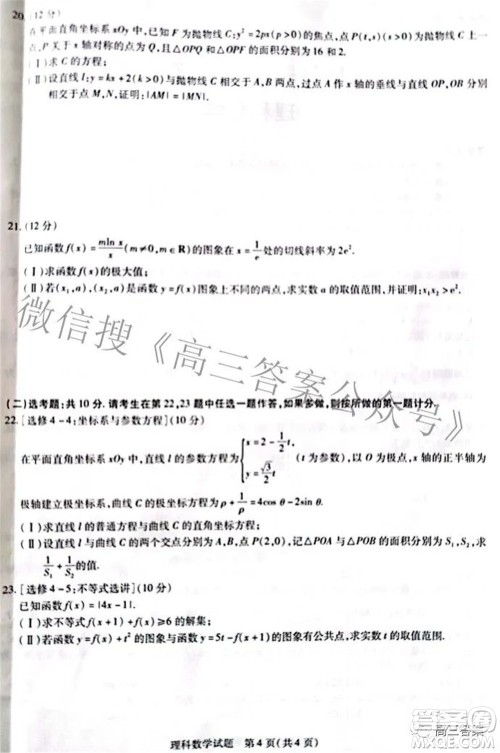 20. (12 分)
在平面直角坐标系 xOy 中, F 为抛物线 C: y²=2px(p>0) 的焦点, 点 P(t,s) (t>0) 为抛物线 C 上一点, P 关于 x 轴对称的点为 Q, 且 △OPQ 和 △OPF 的面积分别为 16 和 2.
(Ⅰ) 求 C 的方程;
(Ⅱ) 设直线 l: y=kx+2(k>0) 与抛物线 C 相交于 A, B 两点, 过点 A 作 x 轴的垂线与直线 OP, OB 分别相交于点 M, N, 证明: |AM|=|MN|.
21. (12 分)
已知函数 f(x)=mln x/x (m≠0, m∈R) 的图象在 x=1/e 处的切线斜率为 2e².
(Ⅰ) 求函数 f(x) 的极大值;
(Ⅱ) 若 (x₁,a), (x₂,a) 是函数 y=f(x) 图象上不同的两点, 求实数 a 的取值范围, 并证明: x₁x₂>e².
(二) 选考题: 共 10 分. 请考生在第 22, 23 题中任选一题作答, 如果多做, 则按所做的第一题计分.
22. [选修 4-4: 坐标系与参数方程] (10 分)
在平面直角坐标系 xOy 中, 直线 l 的参数方程为 {x=2-1/2 t, y=√3/2 t (t 为参数), 以 O 为极点, x 轴的正半轴为
极轴建立极坐标系, 曲线 C 的极坐标方程为 ρ+1/ρ=4cos θ-2sin θ.
(Ⅰ) 求直线 l 的普通方程与曲线 C 的直角坐标方程;
(Ⅱ) 设直线 l 与曲线 C 的两个交点分别为 A, B, 点 P(2,0), 记 △POA 与 △POB 的面积分别为 S₁, S₂, 求
1/S₁+1/S₂ 的值.
23. [选修 4-5: 不等式选讲] (10 分)
已知函数 f(x)=|4x-1|.
(Ⅰ) 求不等式 f(x+1)+f(x)≥6 的解集;
(Ⅱ) 若函数 y=f(x)+t² 的图象与函数 y=5t-f(x+1) 的图象有公共点, 求实数 t 的取值范围.
理科数学试题 第 4 页 (共 4 页)
微信搜《高三答案公众号》
高三答案